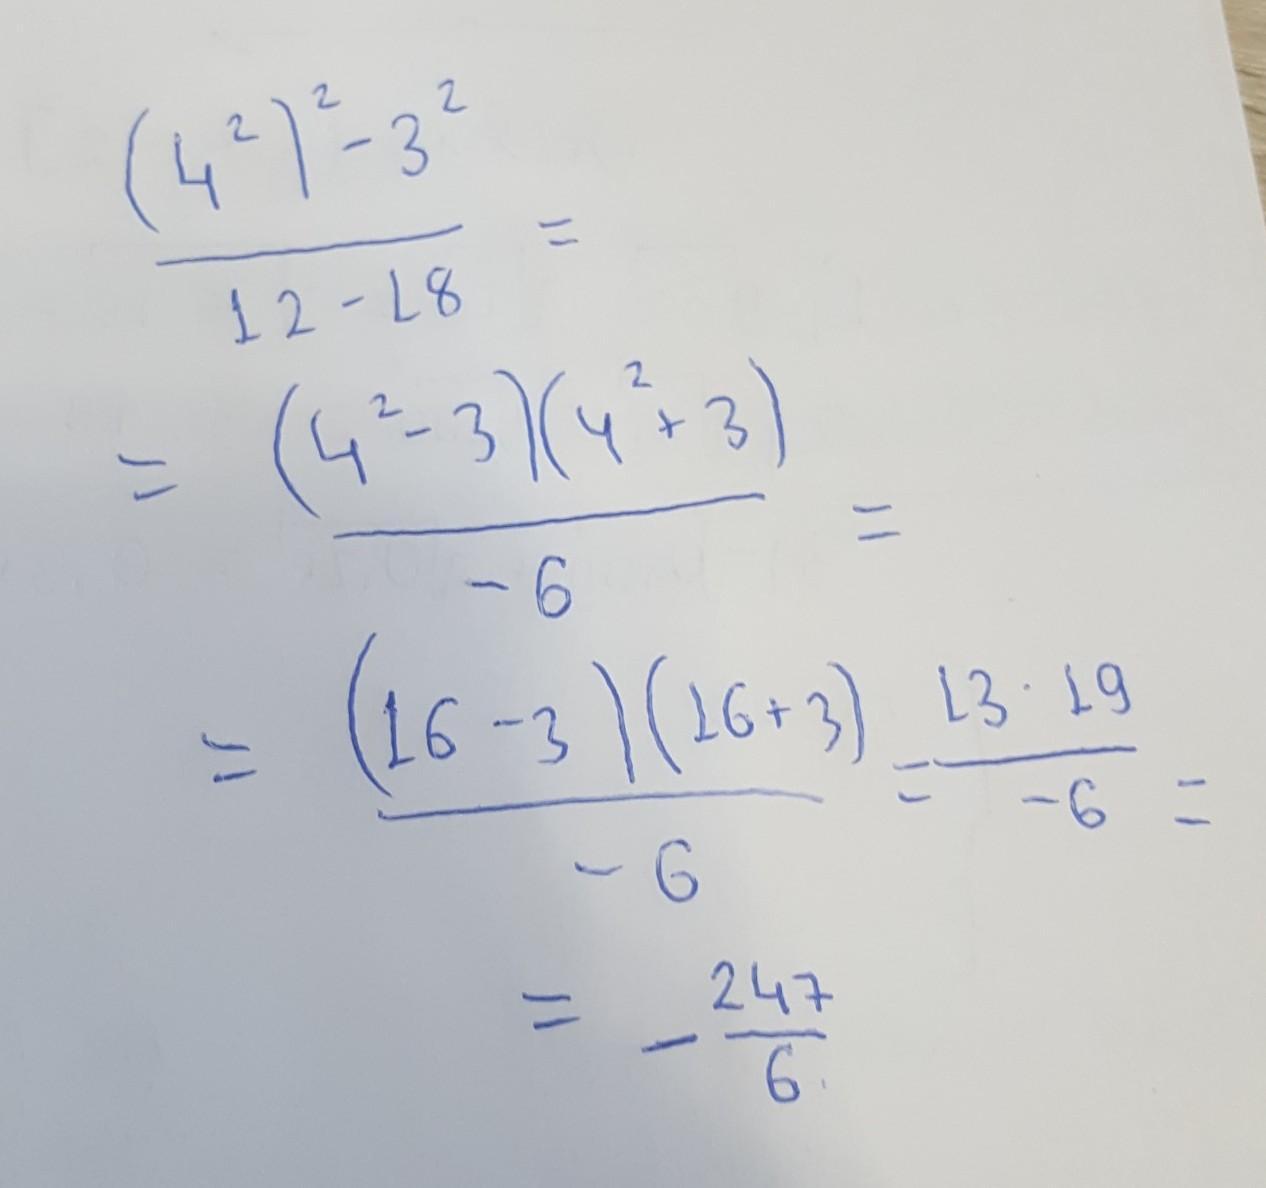 (4²)² - 3²
12 - 18 =
= (4² - 3)(4² + 3)
- 6 =
= (16 - 3)(16 + 3) = 13 · 19
- 6 - 6 =
= - 247
6